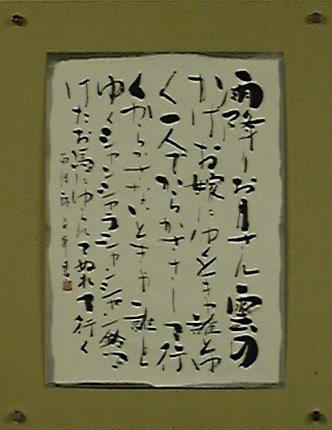 雨降りお月さん雲の
かげお嫁にゆくときゃ誰とゆ
く一人でからかささして行
くからかさないときゃ誰と
ゆくシャンシャラシャンシャン鈴つ
けたお馬にゆられてぬれて行く